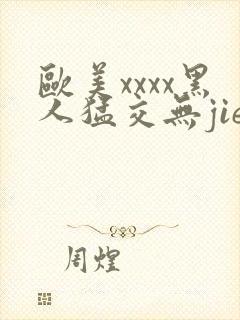 歐美xxxx黑
人猛交無jie
周煌